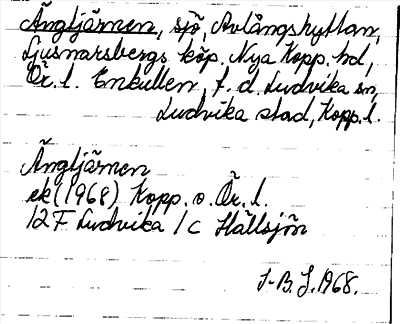 Ängtjärnen, sjö, Avlångshyttan,
Ljusnarsbergs köp. Nya Kopp. hd,
Ör. l. Enkullen, f. d. Ludvika sn,
Ludvika stad, Kopp. l.
Ängtjärnen
ek (1968) Kopp. o. Ör. l.
12 F Ludvika 1 c Hällsjön
S-B. J. 1968.